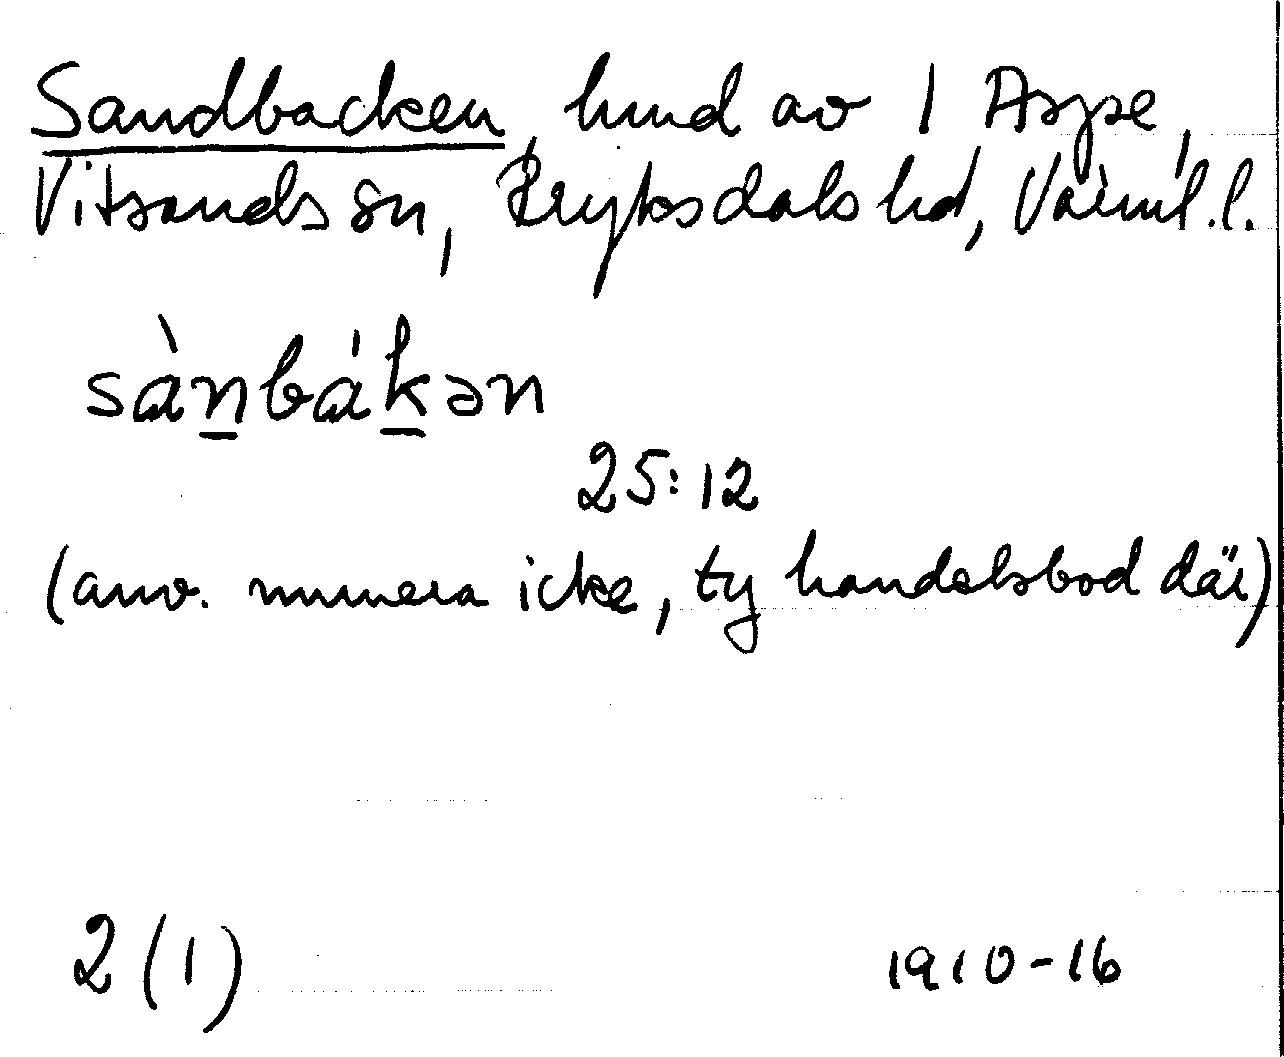 Sandbacken, hmd av 1 Aspe,
Vitsands sn, Fryksdals hd, Värml. l.
sàn̲bák̲ən
25:12
(anv. numera icke, ty handelsbod där)
2(1) 1910-16